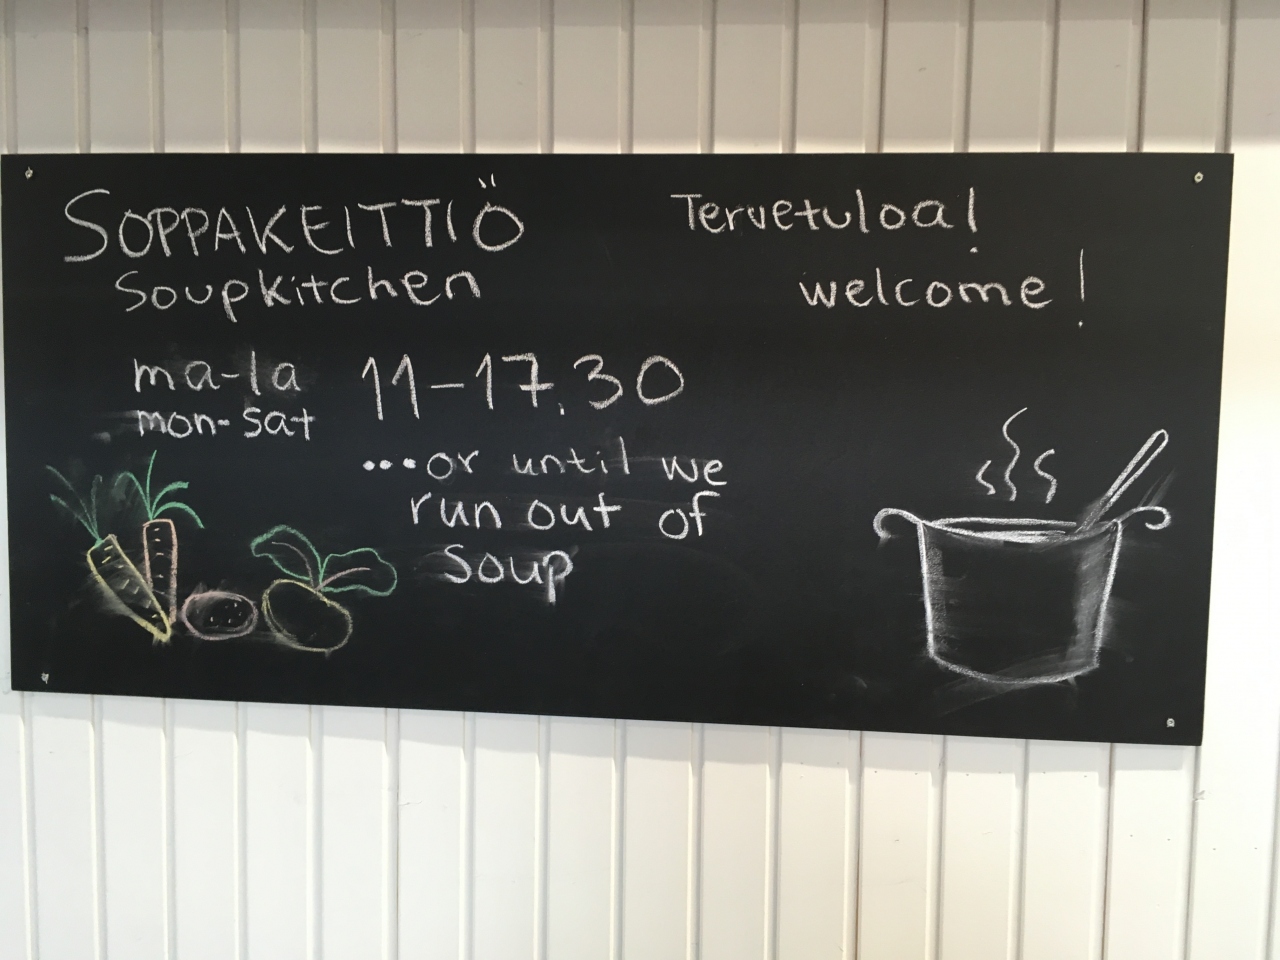 SOPPAKEITTIÖ
Soupkitchen
Tervetuloa!
welcome!
ma-la 11-17.30
mon-sat
...or until we
run out of
soup